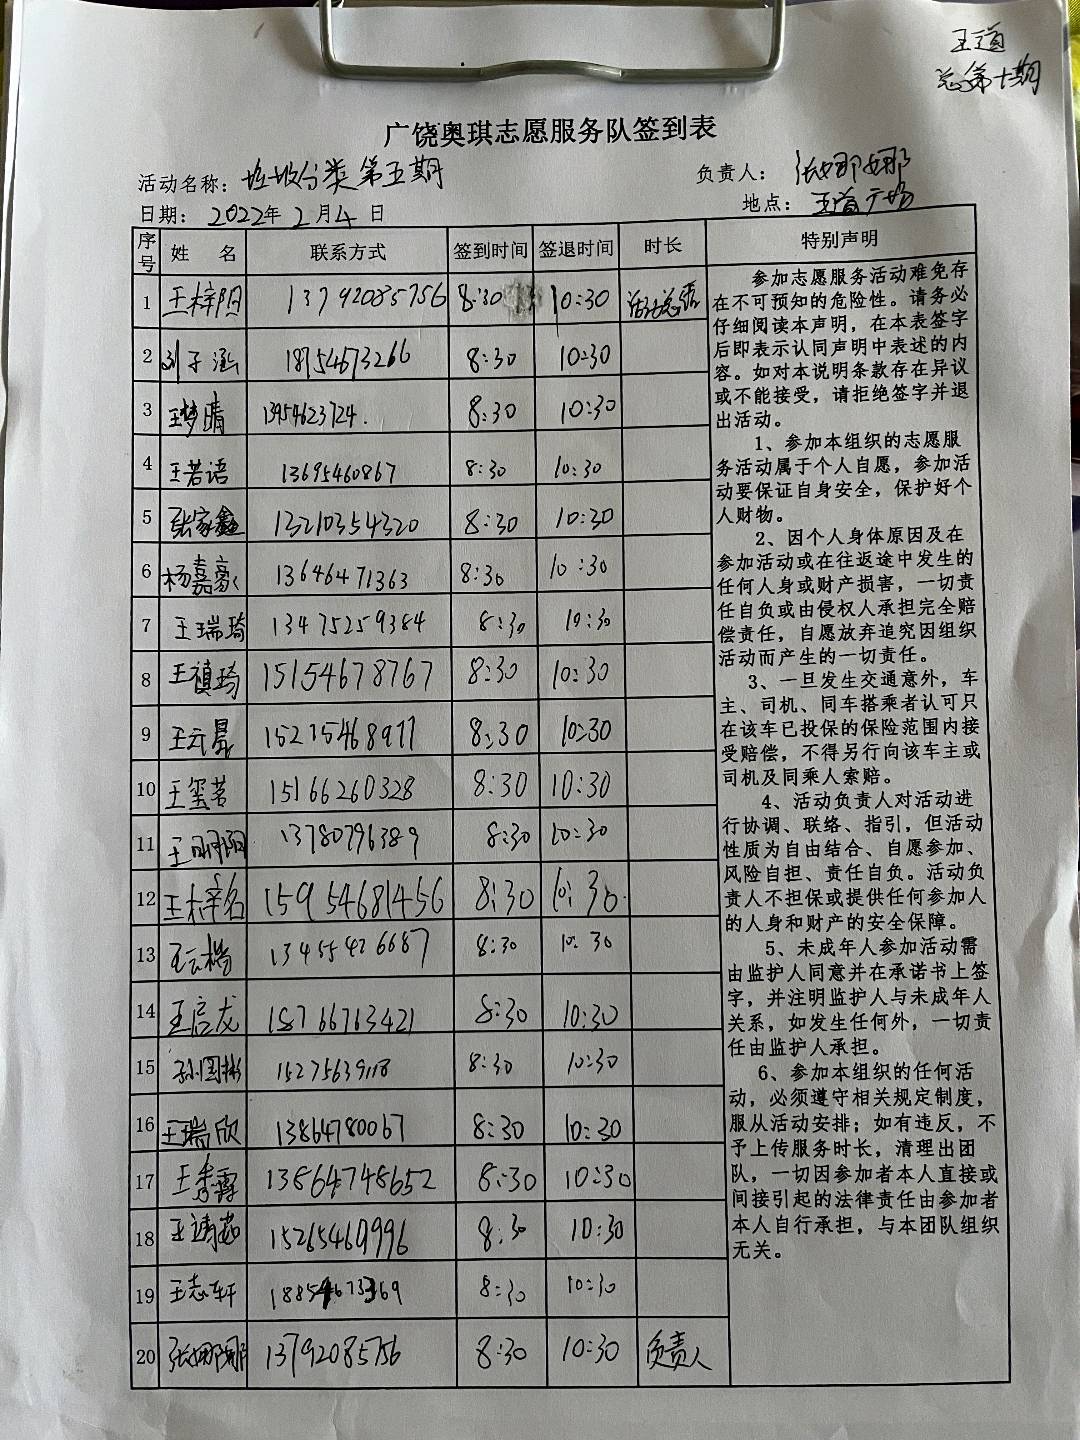 王道
总第十期
广饶奥琪志愿服务队签到表
活动名称：垃圾分类第五期 负责人：张娜娜
日期：2022年2月4日 地点：王道广场
序号 姓 名 联系方式 签到时间 签退时间 时长 特别声明
1 王梓阳 13792085756 8:30 10:30
2 刘子涵 18754673266 8:30 10:30
3 王梦晴 13954623724. 8:30 10:30
4 王若语 13695460867 8:30 10:30
5 张家鑫 13210354320 8:30 10:30
6 杨嘉豪 13646471363 8:30 10:30
7 王瑞琦 13475259384 8:30 10:30
8 王禛琦 15154678767 8:30 10:30
9 王云 8:30 10:30
10 王玺茗 15166260328 8:30 10:30
11 王明阳 13780796389 8:30 10:30
12 王梓名 15954681456 8:30 10:30
13 王云 13455426687 8:30 10:30
14 王启龙 18766763421 8:30 10:30
15 孙国彬 15275639118 8:30 10:30
16 王瑞欣 13864780067 8:30 10:30
17 王 13864748652 8:30 10:30
18 王靖茹 15265460996 8:30 10:30
19 王志轩 18854673369 8:30 10:30
20 张娜娜 13792085756 8:30 10:30 负责人
参加志愿服务活动难免存
在不可预知的危险性。请务必
仔细阅读本声明，在本表签字
后即表示认同声明中表述的内
容。如对本说明条款存在异议
或不能接受，请拒绝签字并退
出活动。
1、参加本组织的志愿服
务活动属于个人自愿，参加活
动要保证自身安全，保护好个
人财物。
2、因个人身体原因及在
参加活动或在往返途中发生的
任何人身或财产损害，一切责
任自负或由侵权人承担完全赔
偿责任，自愿放弃追究因组织
活动而产生的一切责任。
3、一旦发生交通意外，车
主、司机、同车搭乘者认可只
在该车已投保的保险范围内接
受赔偿，不得另行向该车主或
司机及同乘人索赔。
4、活动负责人对活动进
行协调、联络、指引，但活动
性质为自由结合、自愿参加、
风险自担、责任自负。活动负
责人不担保或提供任何参加人
的人身和财产的安全保障。
5、未成年人参加活动需
由监护人同意并在承诺书上签
字，并注明监护人与未成年人
关系，如发生任何外，一切责
任由监护人承担。
6、参加本组织的任何活
动，必须遵守相关规定制度，
服从活动安排；如有违反，不
予上传服务时长，清理出团
队，一切因参加者本人直接或
间接引起的法律责任由参加者
本人自行承担，与本团队组织
无关。